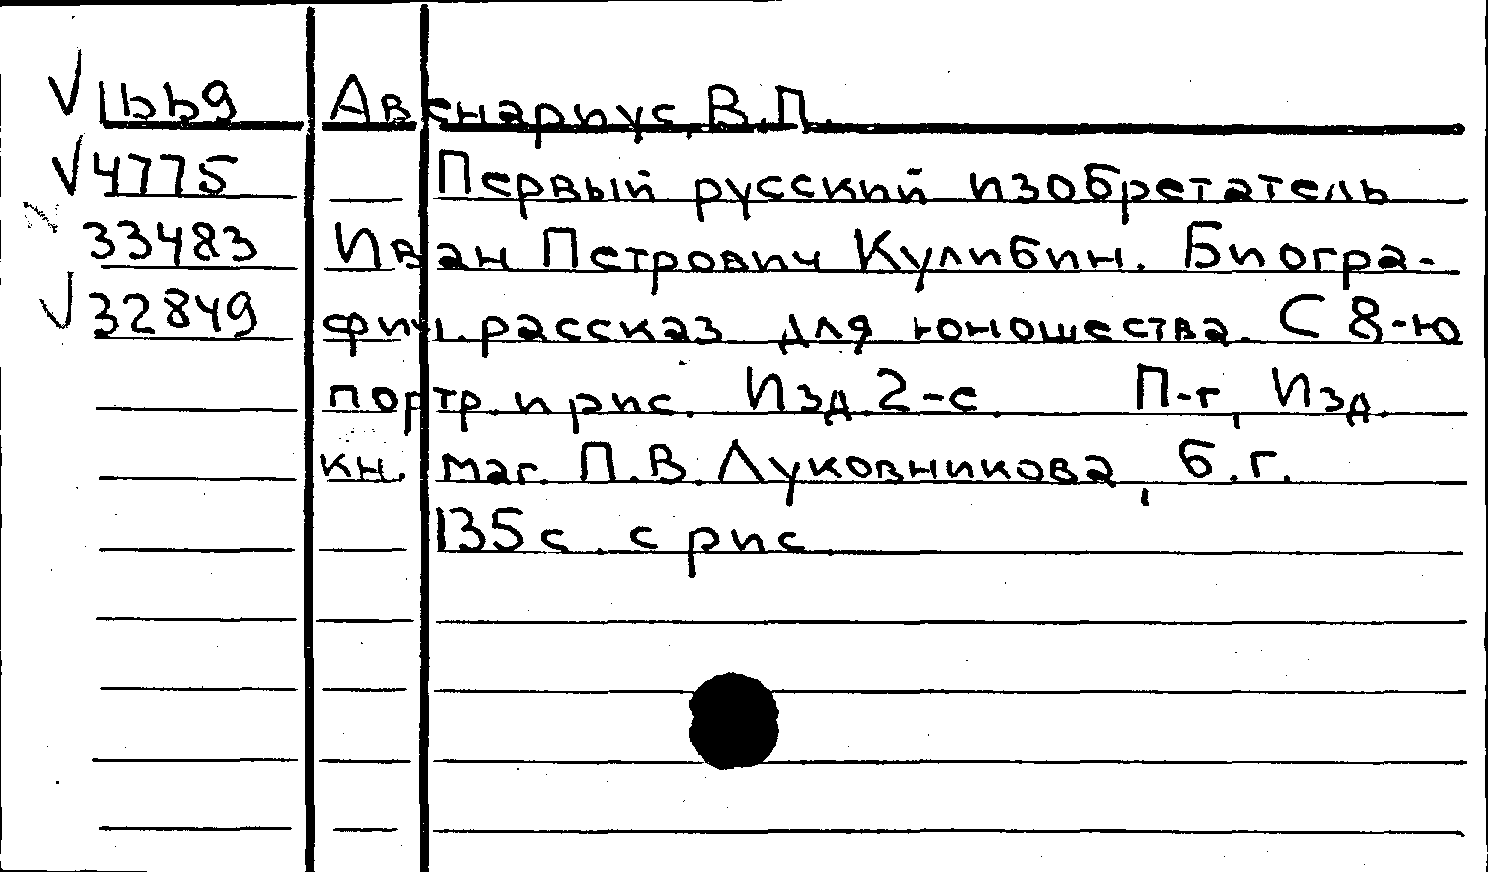 √1669 Авенариус, В.П.
√4775 Первый русский изобретатель
33483 Иван Петрович Кулибин. Биогра-
√32849 фич. рассказ для юношества. С 8-ю
портр. и рис. Изд. 2-е. П-г, Изд.
кн. маг. П.В. Луковникова, б.г.
135 с. с рис.